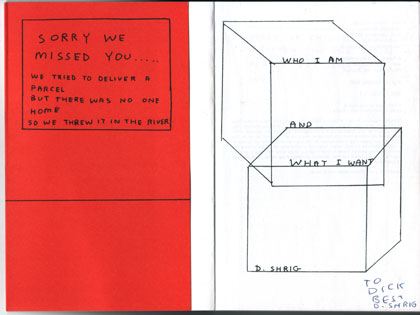 SORRY WE
MISSED YOU.....
WE TRIED TO DELIVER A
PARCEL
BUT THERE WAS NO ONE
HOME
SO WE THREW IT IN THE RIVER
WHO I AM
AND
WHAT I WANT
D. SHRIG
TO
DICK
BEST
D. SHRIG